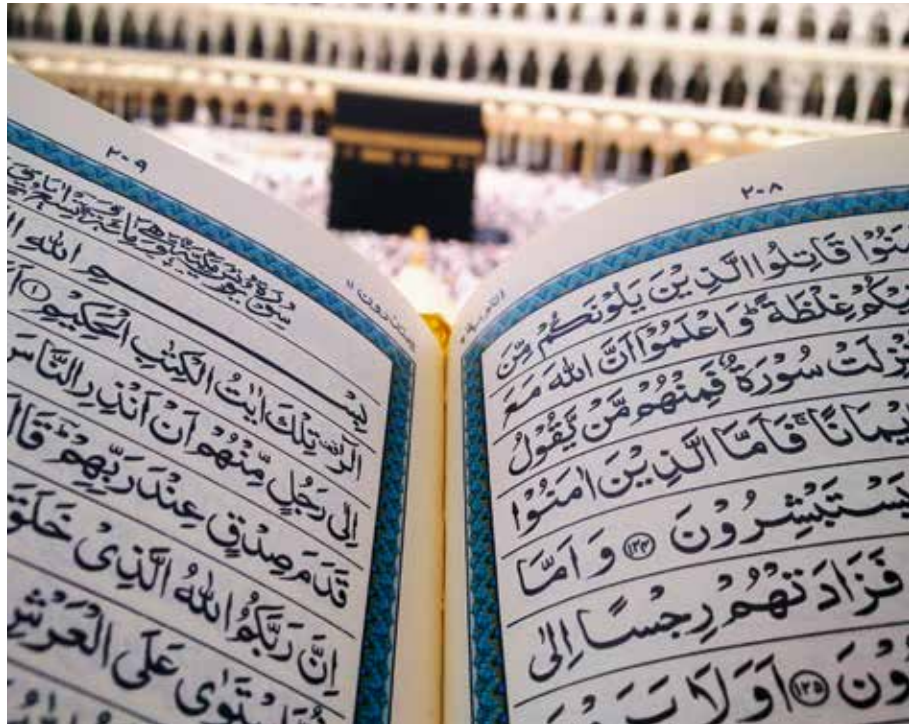 ٢٠٨
مَنُوْا قَاتِلُوا الَّذِيْنَ يَلُوْنَكُمْ مِّنَ
يْكُمْ غِلْظَةً ؕ وَاعْلَمُوْۤا اَنَّ اللّٰهَ مَعَ
نْزِلَتْ سُوْرَةٌ فَمِنْهُمْ مَّنْ يَّقُوْلُ
يْمَانًا ۚ فَاَمَّا الَّذِيْنَ اٰمَنُوْا
يَسْتَبْشِرُوْنَ ﴿۱۲۴﴾ وَ اَمَّا
فَزَادَتْهُمْ رِجْسًا اِلٰى
رُوْنَ ﴿۱۲۵﴾ اَوَلَا يَرَوْنَ
٢٠٩
بِسْــــمِ اللّٰهِ
الٓرٰ ۫ تِلْكَ اٰيٰتُ الْكِتٰبِ الْحَكِيْمِ ﴿۱﴾
اِلٰى رَجُلٍ مِّنْهُمْ اَنْ اَنْذِرِ النَّاسَ
قَدَمَ صِدْقٍ عِنْدَ رَبِّهِمْ ؕ قَالَ
اِنَّ رَبَّكُمُ اللّٰهُ الَّذِىْ خَلَقَ
اسْتَوٰى عَلَى الْعَرْشِ